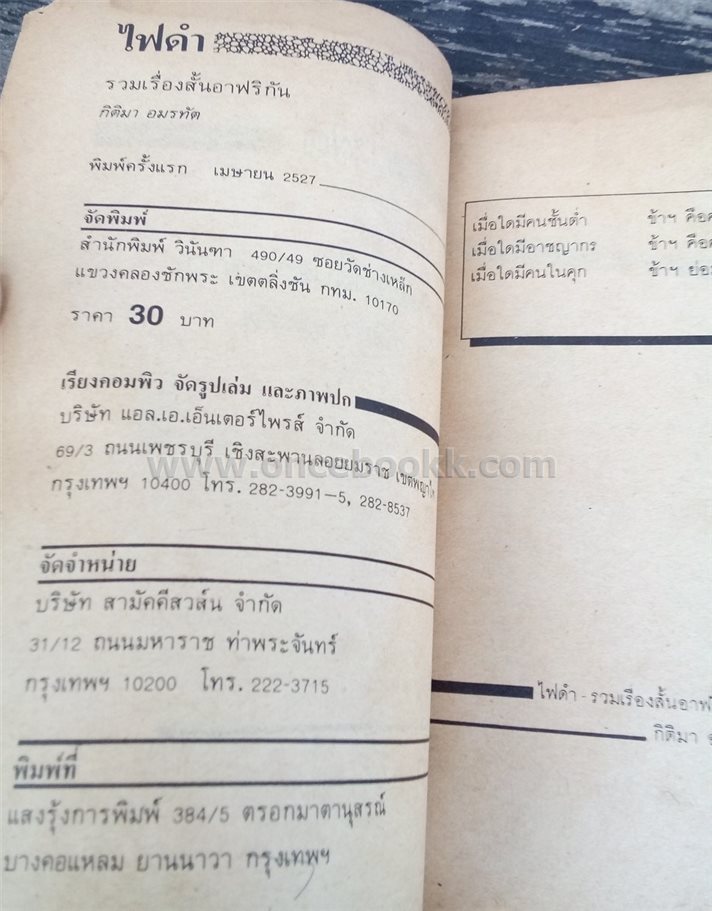 ไฟดำ
รวมเรื่องสั้นอาฟริกัน
กิติมา อมรทัต
พิมพ์ครั้งแรก เมษายน 2527
จัดพิมพ์
สำนักพิมพ์ วินันฑา 490/49 ซอยวัดช่างเหล็ก
แขวงคลองชักพระ เขตตลิ่งชัน กทม. 10170
ราคา 30 บาท
เรียงคอมพิว จัดรูปเล่ม และภาพปก
บริษัท แอล.เอ.เอ็นเตอร์ไพรส์ จำกัด
69/3 ถนนเพชรบุรี เชิงสะพานลอยยมราช เขตพญาไท
กรุงเทพฯ 10400 โทร. 282-3991-5, 282-8537
www.oncebookk.com
จัดจำหน่าย
บริษัท สามัคคีสวส์น จำกัด
31/12 ถนนมหาราช ท่าพระจันทร์
กรุงเทพฯ 10200 โทร. 222-3715
พิมพ์ที่
แสงรุ้งการพิมพ์ 384/5 ตรอกมาตานุสรณ์
บางคอแหลม ยานนาวา กรุงเทพฯ
เมื่อใดมีคนชั้นต่ำ ข้าฯ คือ
เมื่อใดมีอาชญากร ข้าฯ คือ
เมื่อใดมีคนในคุก ข้าฯ
ไฟดำ - รวมเรื่องสั้น
กิติมา